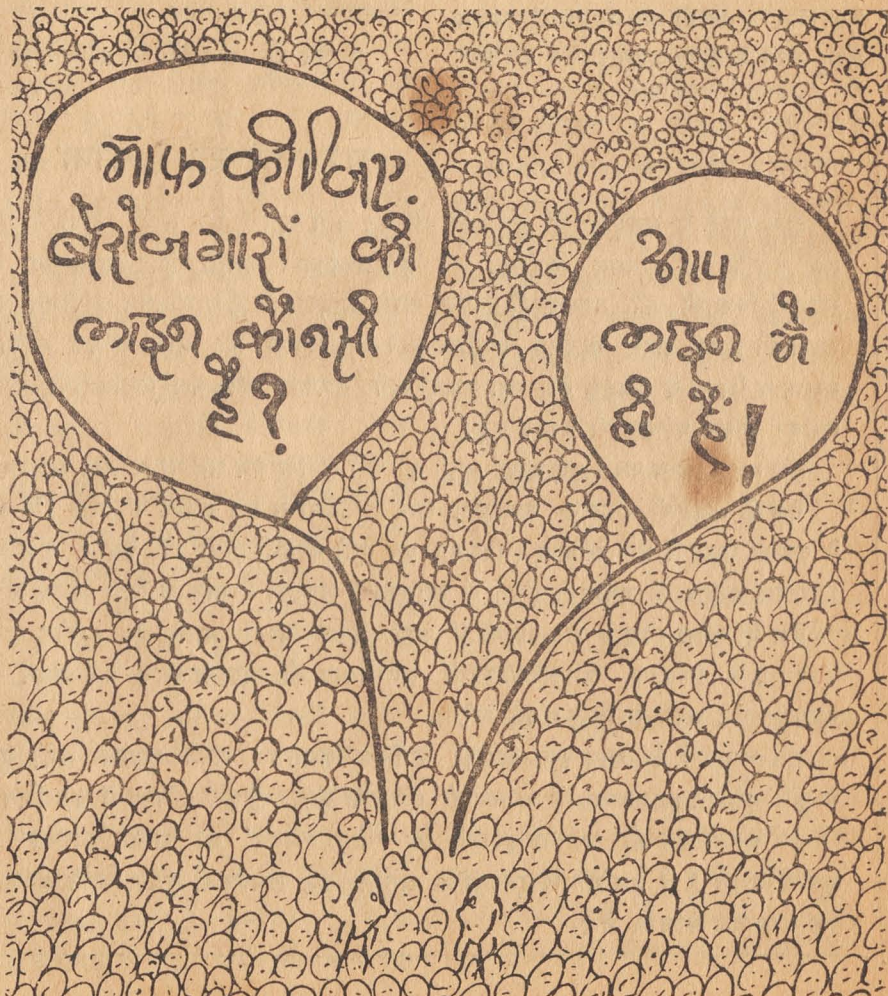 मॉफ़ कीजिए.
बेरोजगारों की
लाइन कौनसी
है?
आप
लाइन में
ही हैं!